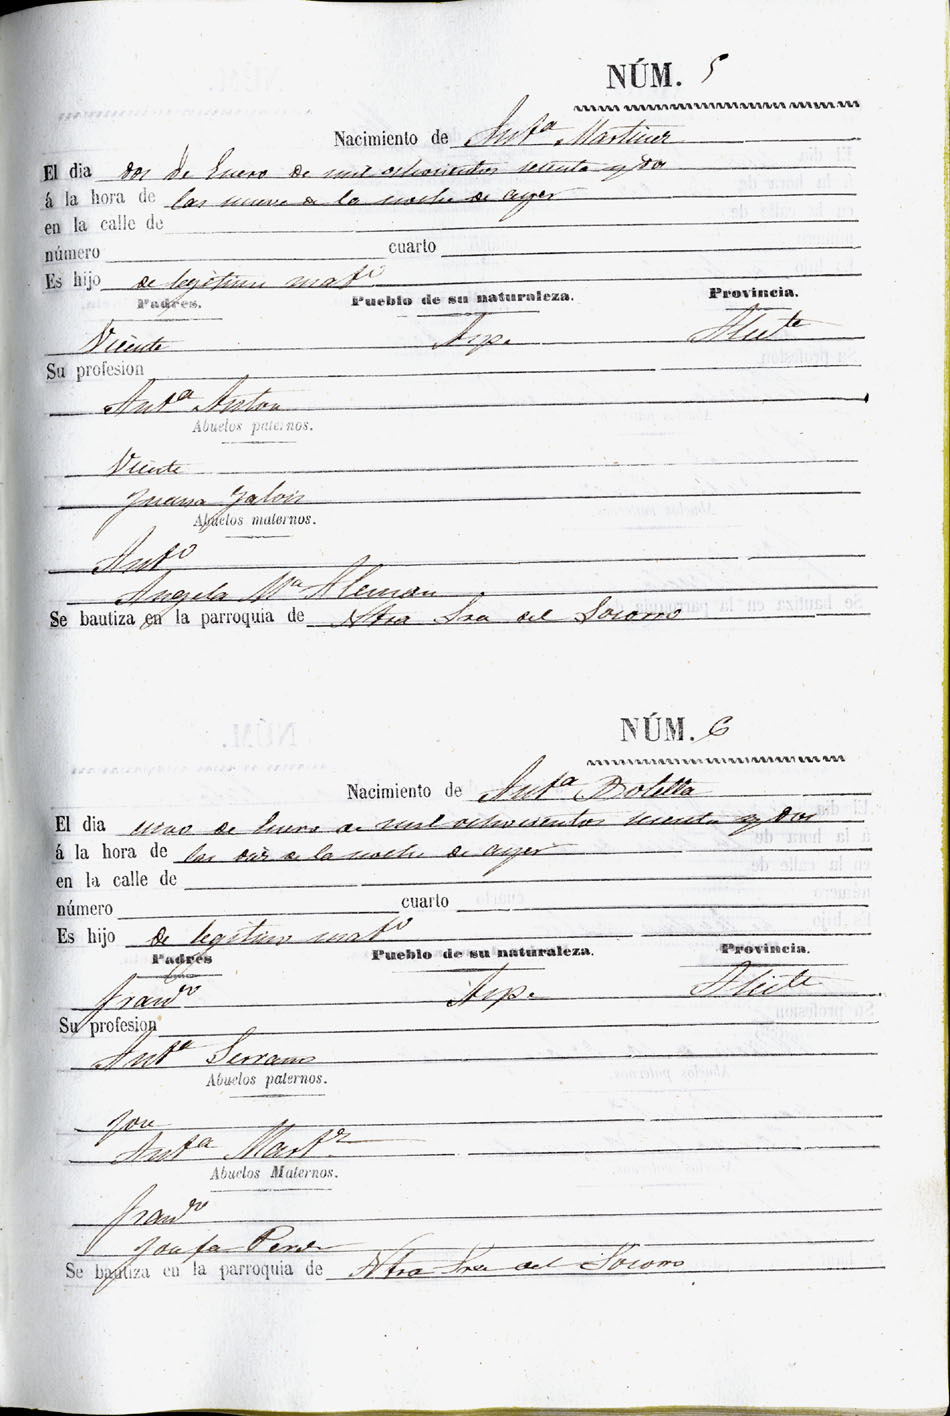 NÚM. 5
Nacimiento de Antª Martinez
El dia dos de Enero de mil ochocientos sesenta y dos
á la hora de las nueve de la noche de ayer
en la calle de
número cuarto
Es hijo de legitimo matº
Padres. Pueblo de su naturaleza. Provincia.
Vicente Aspe Alicte
Su profesion
Antª Anton
Abuelos paternos.
Vicente
Juana
Abuelos maternos.
Antº
Angela Mª Aleman
Se bautiza en la parroquia de Ntra Sra del Socorro
NÚM. 6
Nacimiento de Antª Botella
El dia de Enero de mil ochocientos sesenta y dos
á la hora de las de la noche de ayer
en la calle de
número cuarto
Es hijo de legitimo matº
Padres Pueblo de su naturaleza. Provincia.
Francº Aspe Alicte
Su profesion
Antª Serrano
Abuelos paternos.
Jose
Antª Martz
Abuelos Maternos.
Francº
Josefa Perez
Se bautiza en la parroquia de Ntra Sra del Socorro